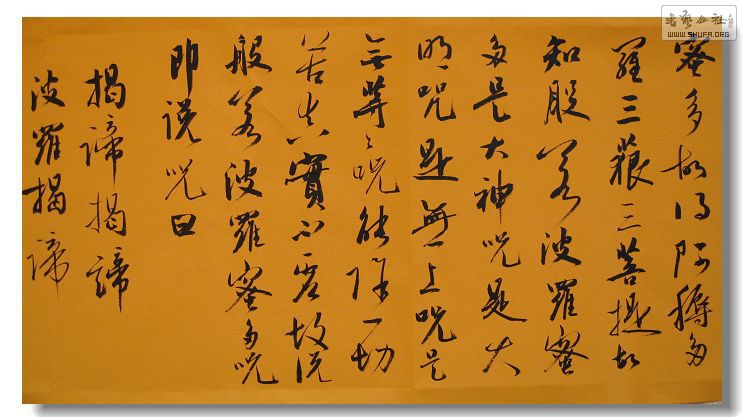 蜜多故得阿耨多
羅三藐三菩提故
知般若波羅蜜
多是大神咒是大
明咒是無上咒是
無等々咒能除一切
苦真實不虛故説
般若波羅蜜多咒
即説咒曰
揭諦揭諦
波羅揭諦
書藝公社
www.SHUFA.ORG